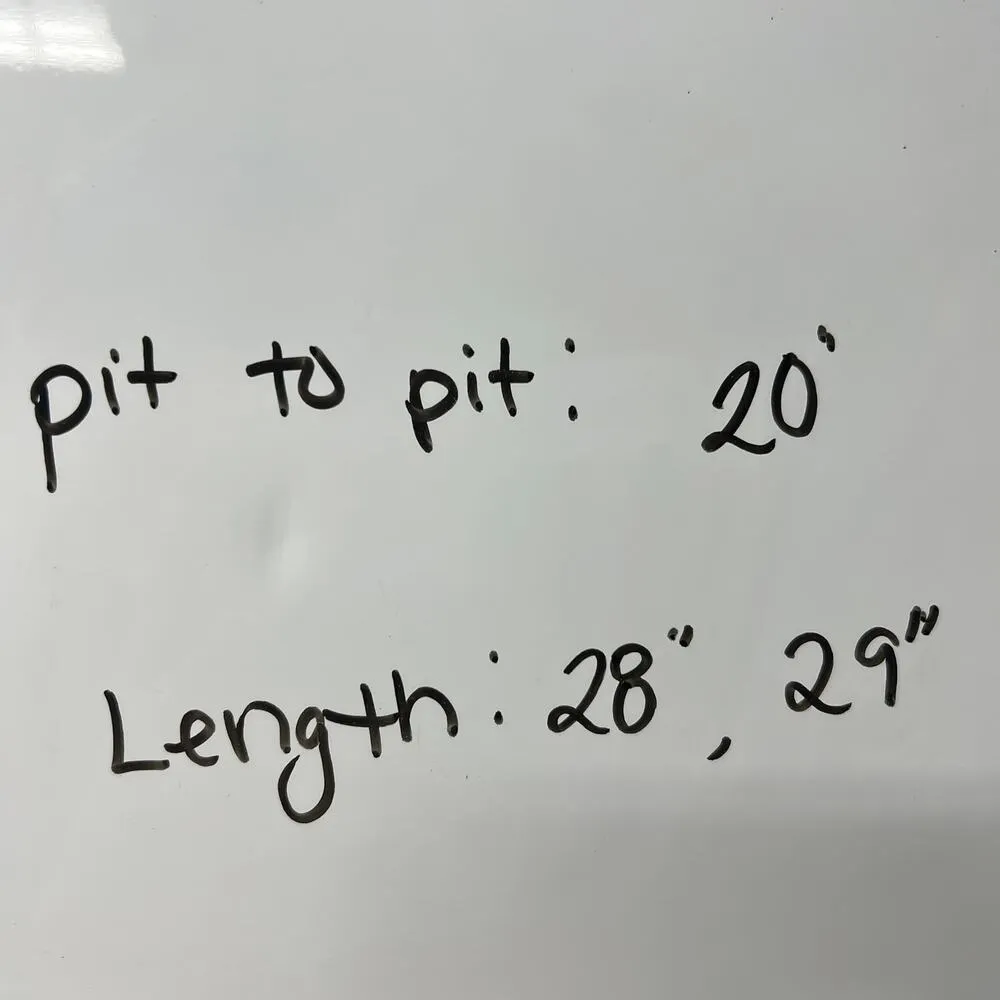 pit to pit: 20"
Length: 28", 29"